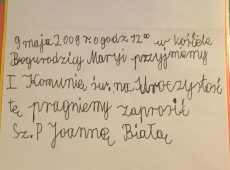 9 maja 2009 r. o godz. 12⁰⁰ w kościele
Bogurodzicy Maryi przyjmiemy
I Komunię św. na Uroczystość
tę pragniemy zaprosić
Sz. P Joannę Białą